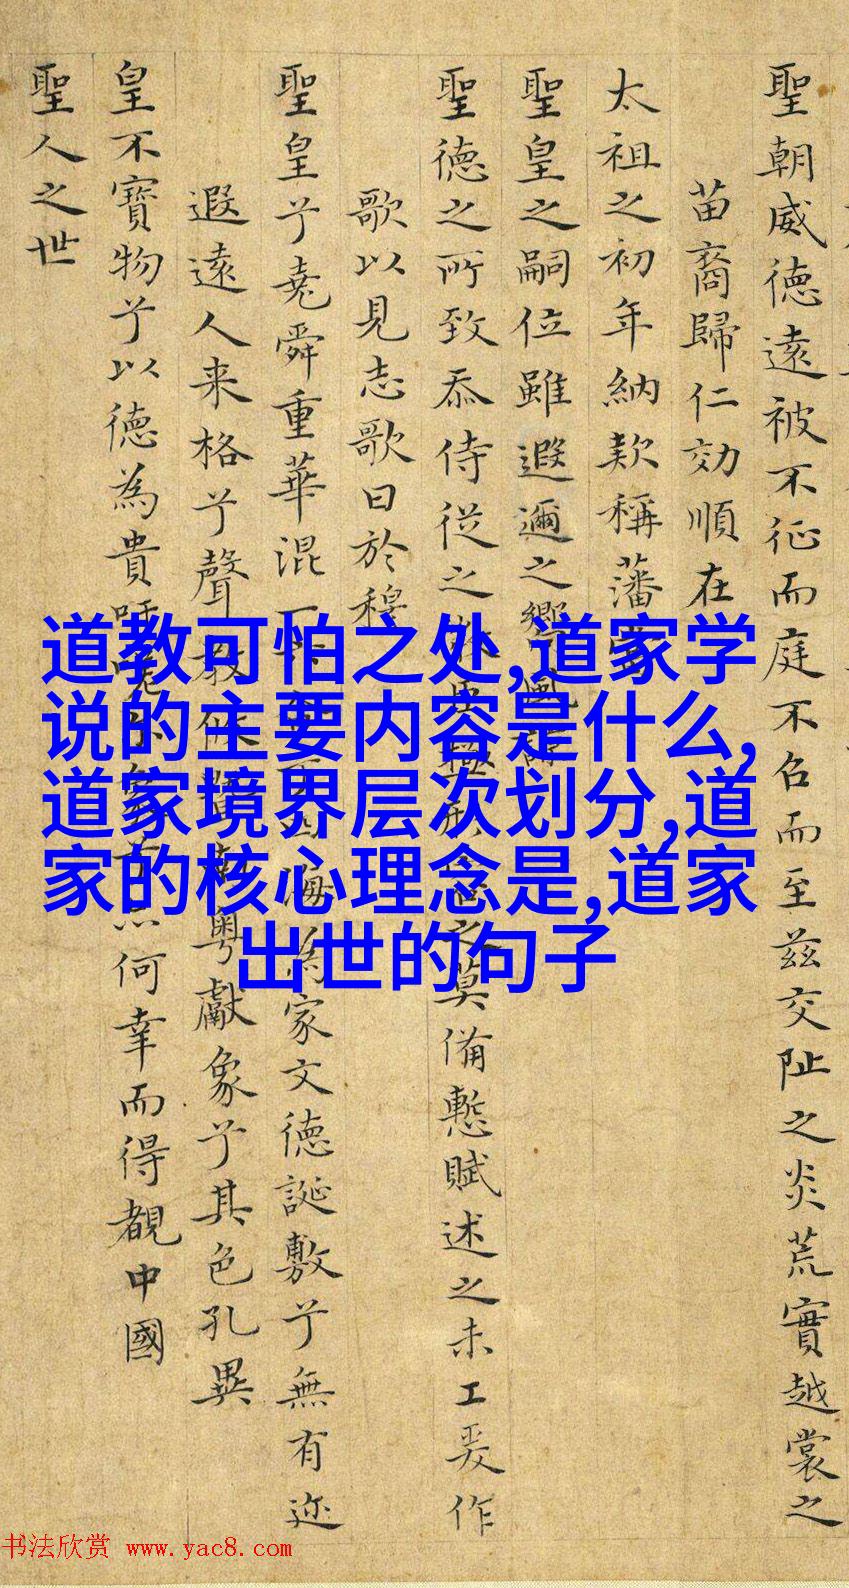 聖朝威德遠被不征而庭不召而至茲交阯之炎荒實越裳之
苗裔歸仁効順在
太祖之初年納款稱藩
聖皇之嗣位雖遐邇之嚮風
聖德之所致忝侍從之臣極形容之莫備慙賦述之未工爰作
歌以見志歌曰於穆
聖皇兮堯舜重華混一四海為家文德誕敷兮無有迩
遐遠人来格兮聲教攸暨南粤獻象兮其色孔異
皇不寶物兮以德為貴吁嗟象兮何幸而得覩中國
聖人之世
道教可怕之处,道家学
说的主要内容是什么,
道家境界层次划分,道
家的核心理念是,道家
出世的句子
书法欣赏 www.yac8.com